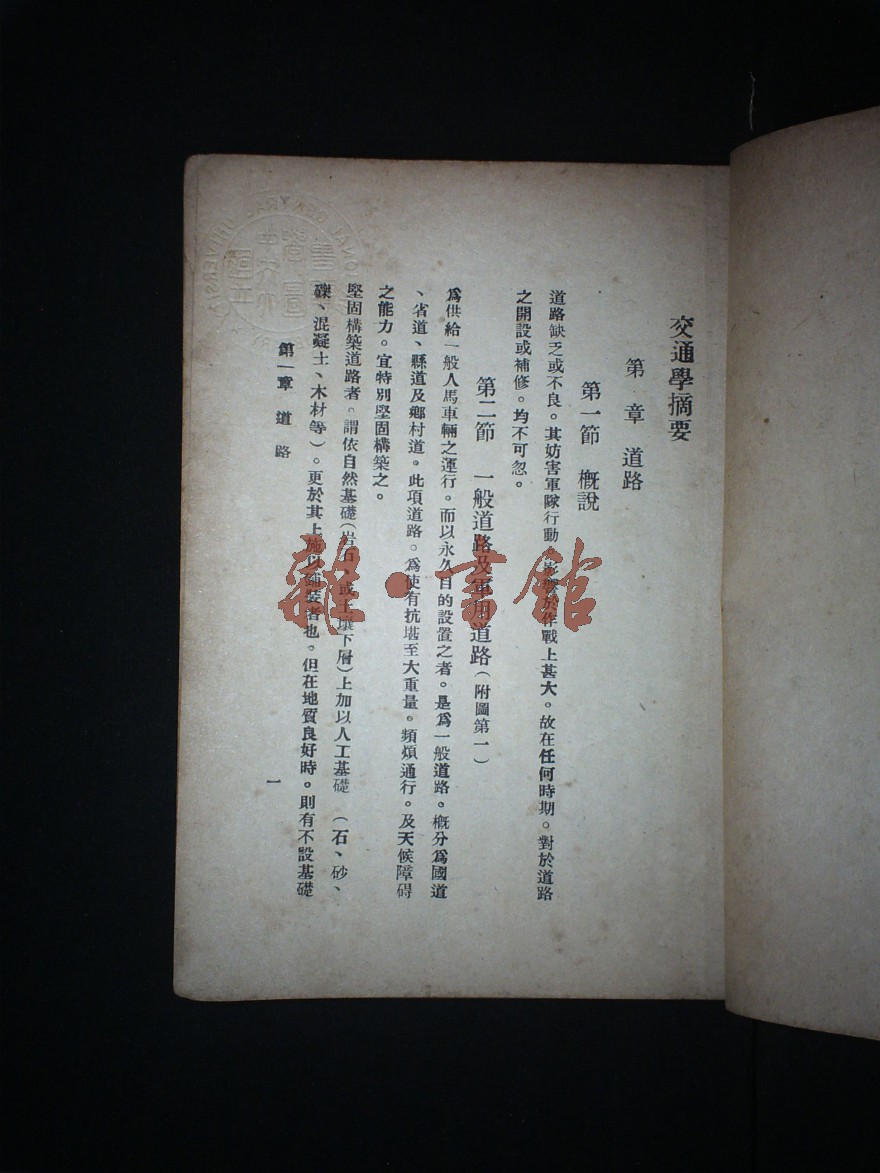 交通學摘要
第 章 道路
第一節 概說
道路缺乏或不良。其妨害軍隊行動。影響於作戰上甚大。故在任何時期。對於道路
之開設或補修。均不可忽。
第二節 一般道路及軍用道路(附圖第一)
爲供給一般人馬車輛之運行。而以永久目的設置之者。是爲一般道路。概分爲國道
、省道、縣道及鄉村道。此項道路。爲使有抗堪至大重量。頻煩通行。及天候障碍
之能力。宜特別堅固構築之。
堅固構築道路者。謂依自然基礎(岩石、或土壤下層)上加以人工基礎 (石、砂、
礫、混凝土、木材等)。更於其上施以鋪裝者也。但在地質良好時。則有不設基礎
第一章 道路
一
雜·書館